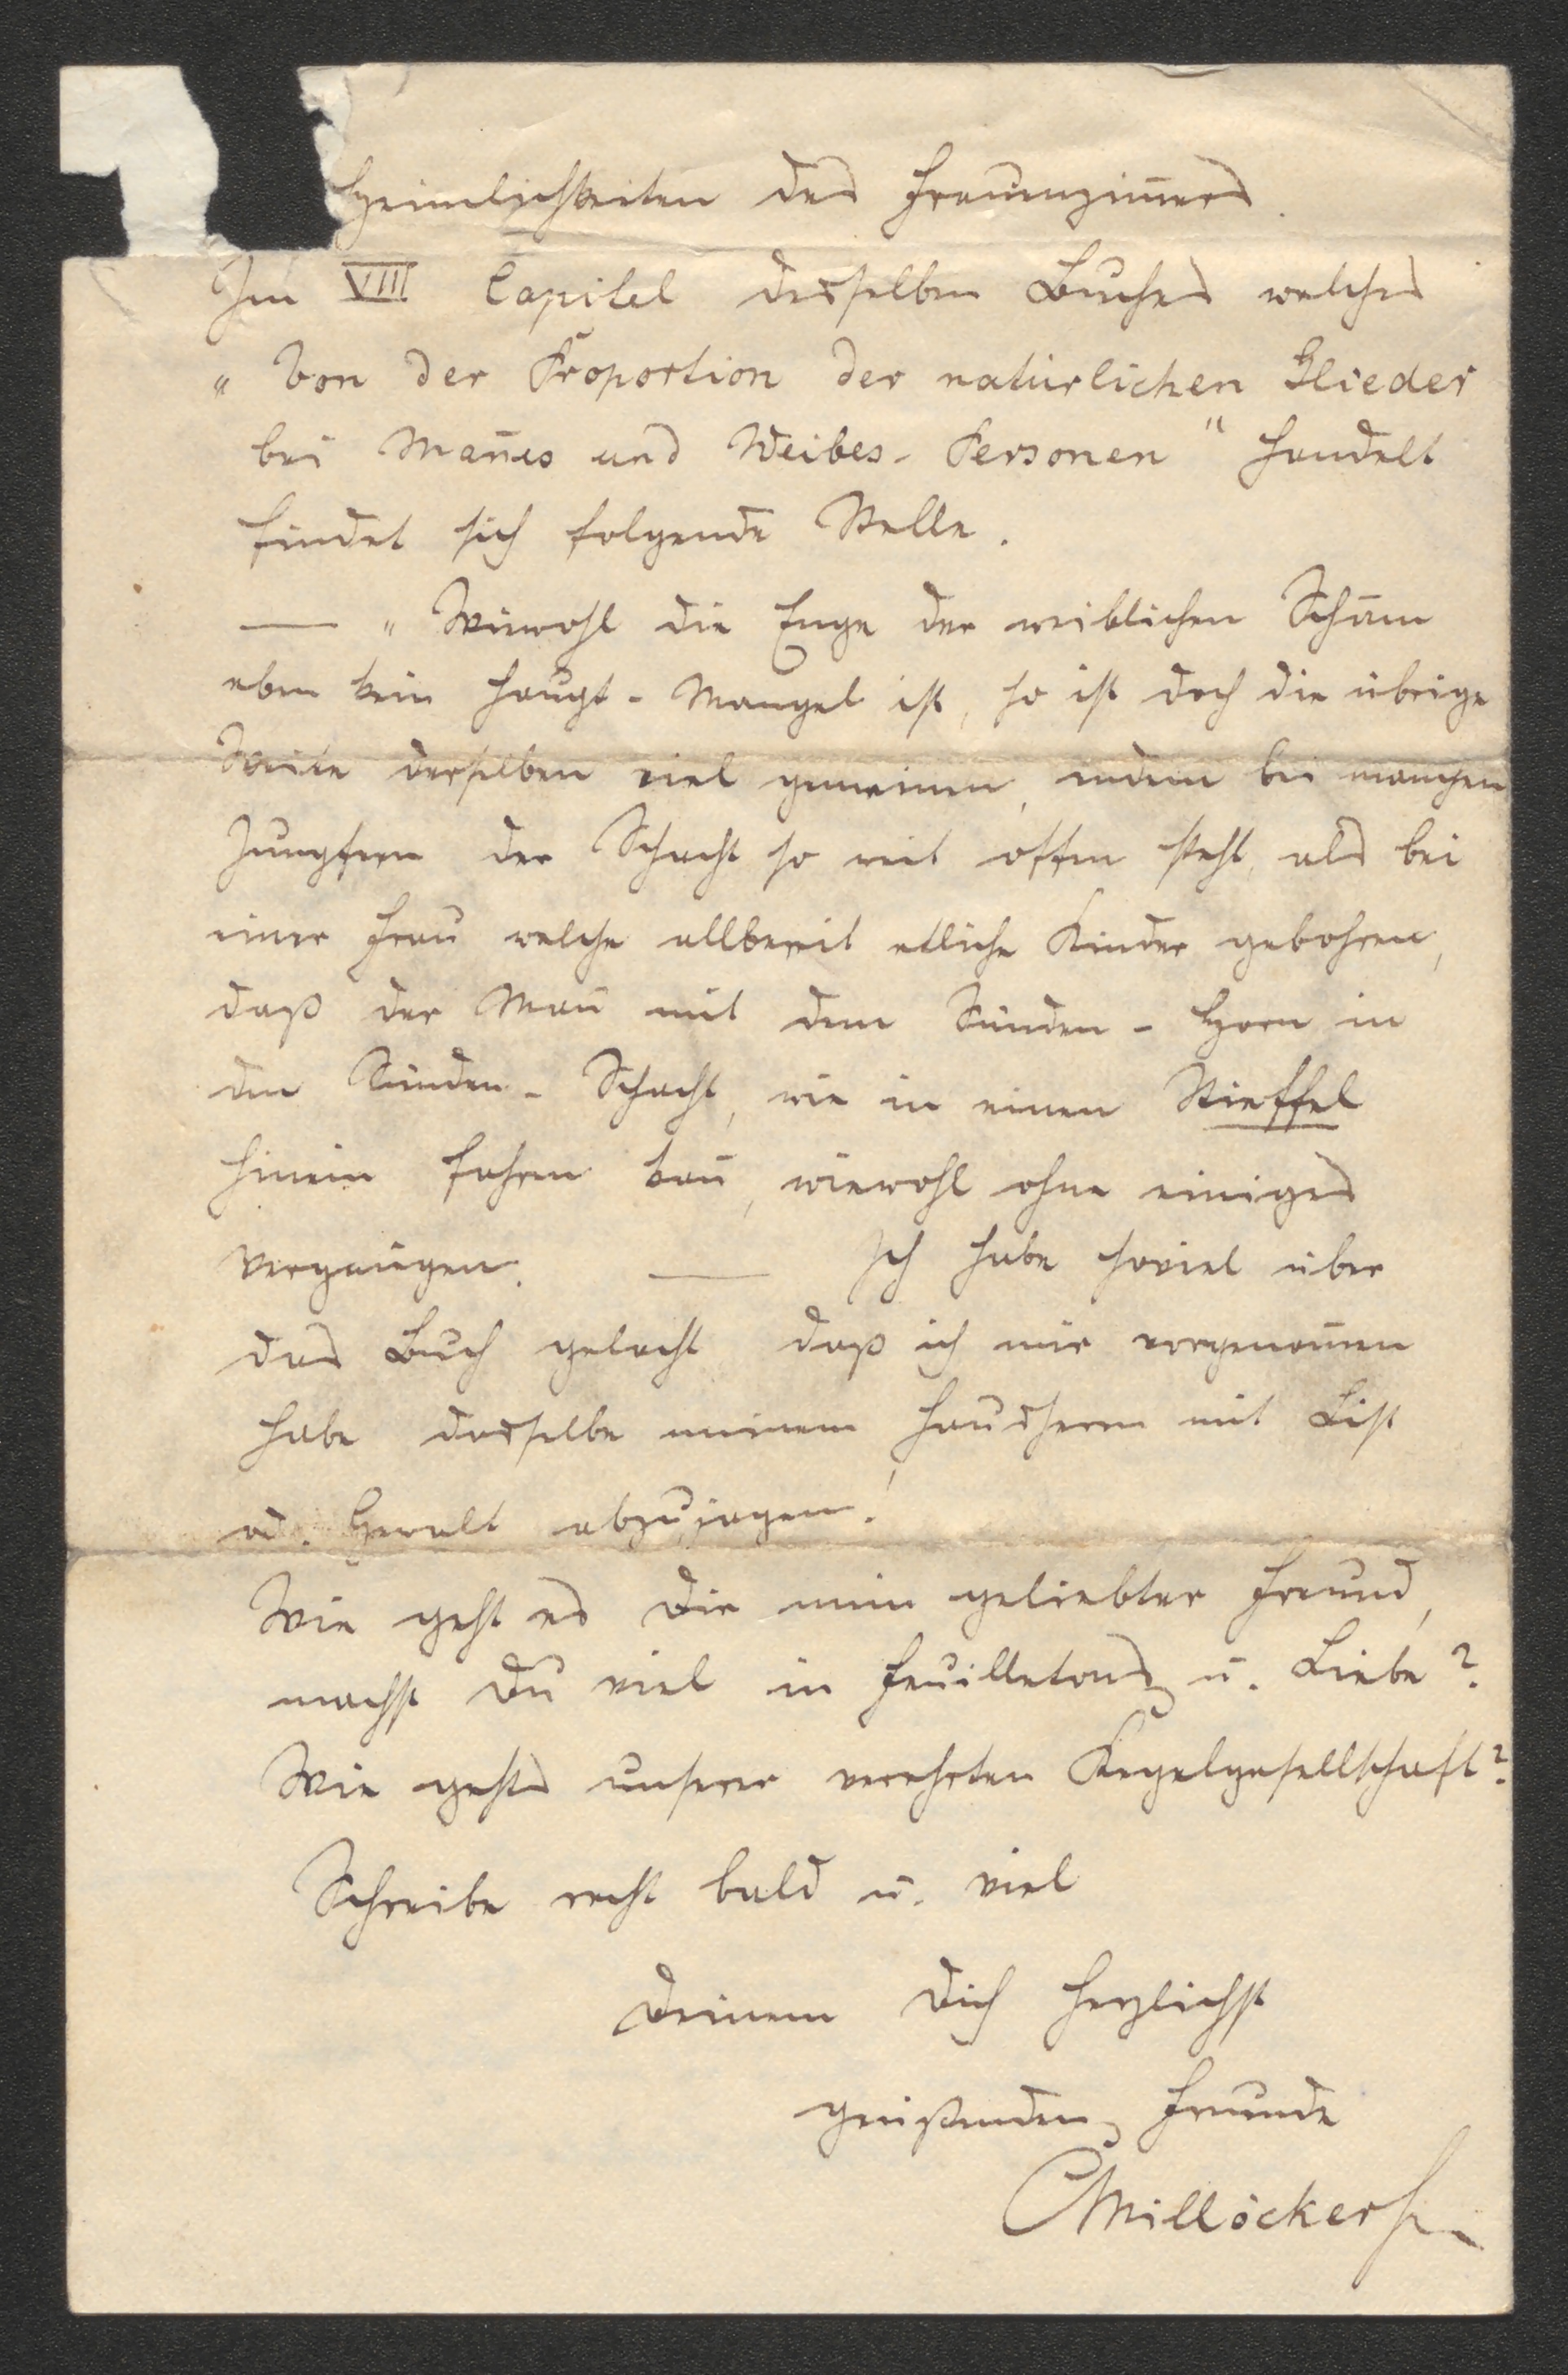 Heimlichkeiten des Frauenzim̅ers.
Im VIII Capitel desselben Buches welches
„Von der Proportion der natürlichen Glieder
bei Man̅es und Weibes-Personen" handelt
findet sich folgende Stelle.
— „Wiewohl die Enge der weiblichen Scham
eben kein Haupt-Mangel ist, so ist doch die übrige
Weite derselben viel gemeiner, indem bei manchen
Jungfern der Schacht so weit offen steht, als bei
einer Frau welche allbereit etliche Kinder gebohren,
daß der Man̅ mit dem Sünden-Horn in
den Sünden-Schacht, wie in einen Stieffel
hinein fahren kan̅, wiewohl ohne einiges
Vergnügen. — Ich habe soviel über
das Buch gelacht daß ich mir vorgenom̅en
habe dasselbe meinem Hausherrn mit List
od. Gewalt abzujagen!
Wie geht es Dir mein geliebter Freund,
machst Du viel in Feuilletons u. Liebe?
Wie gehts unserer verehrten Kegelgesellschaft?
Schreibe recht bald u. viel
Deinem Dich herzlichst
grüßenden Freunde
CMillöcker